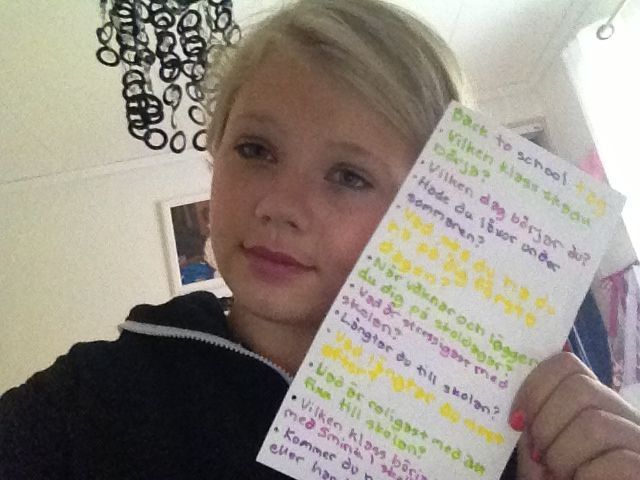 Back to school tag
• Vilken klass ska du
börja?
• Vilken dag börjar du?
• Hade du läxor under
sommaren?
• Vad ska du ha du
på dig första
dagen?
• När vaknar och lägger
du dig på skoldagar?
• Vad är stressigast med
skolan?
• Längtar du till skolan?
• Vad längtar du mest
efter?
• Vad är roligast med att
fixa till skolan?
• Vilken klass börja
med smink i skol
• Kommer du
eller har